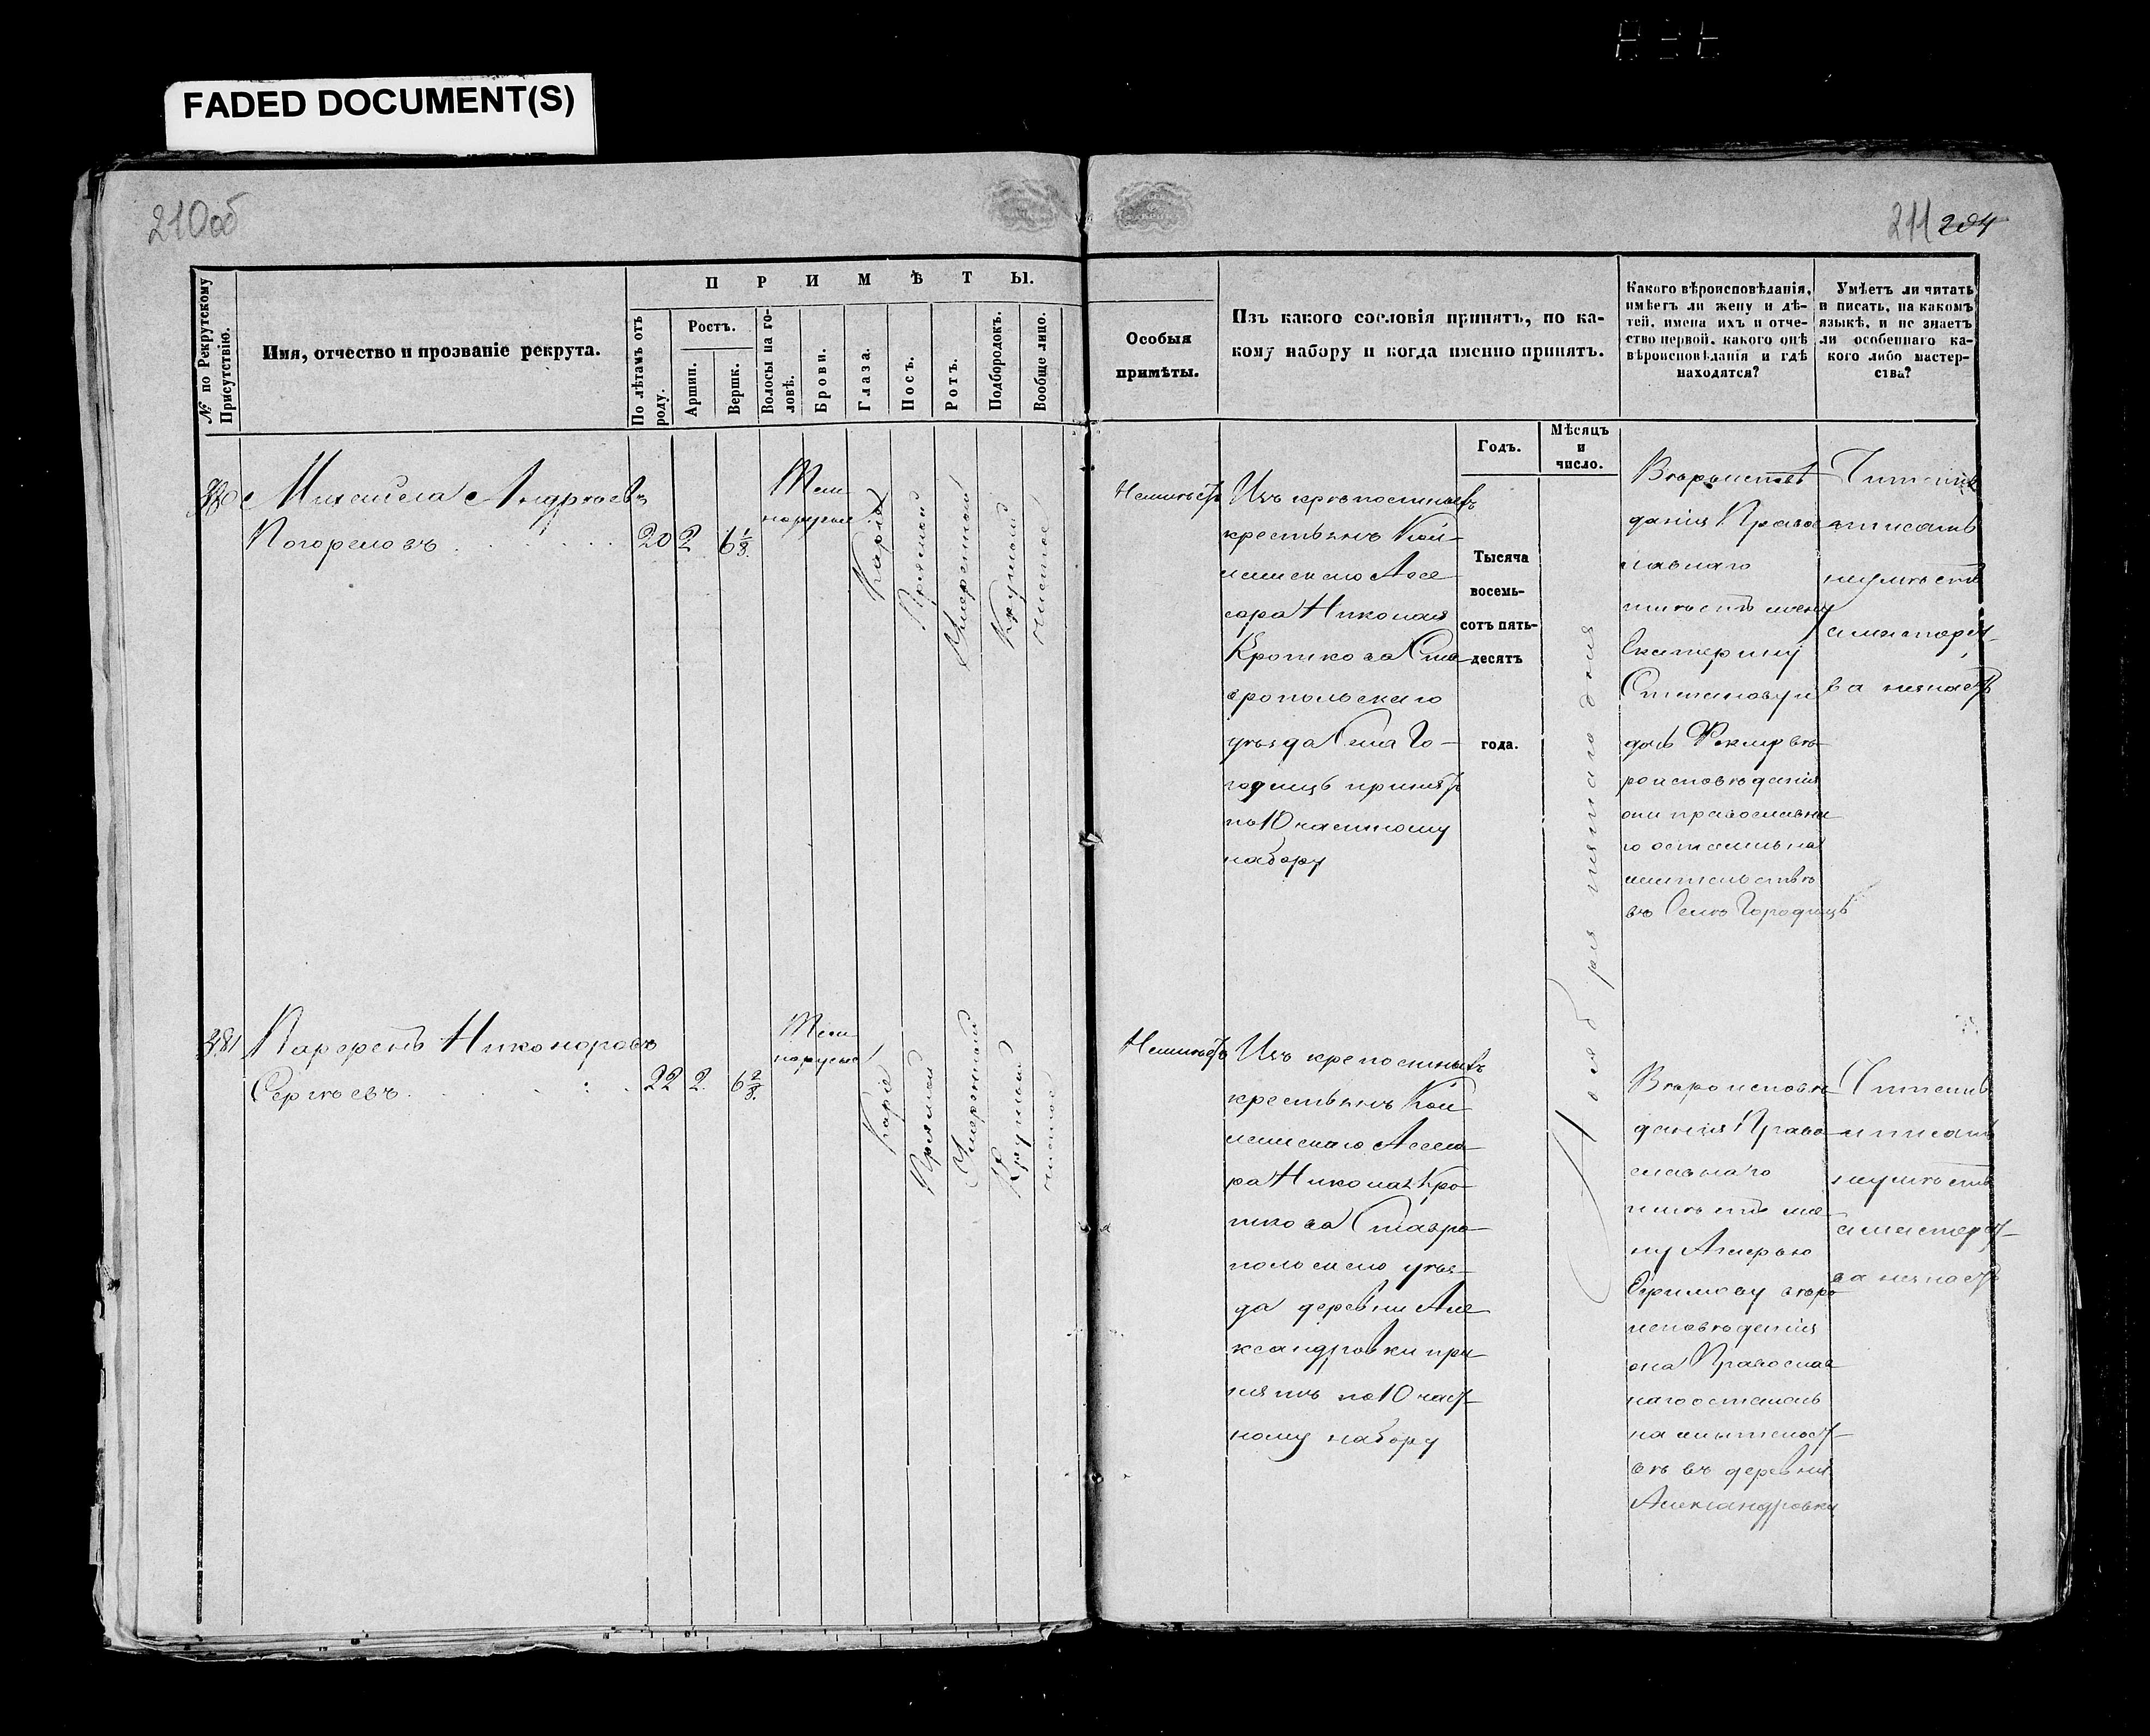 FADED DOCUMENT(S)
210об
211 204
№ по Рекрутскому Присутствію.
Имя, отчество и прозваніе рекрута.
ПРИМѢТЫ.
По лѣтамъ отъ роду.
Ростъ.
Аршин.
Вершк.
Волосы на головѣ.
Брови.
Глаза.
Носъ.
Ротъ.
Подбородокъ.
Вообще лицо.
Особыя
примѣты.
Изъ какого сословія принятъ, по ка-
кому набору и когда именно принятъ.
Годъ.
Мѣсяцъ
и
число.
Какого вѣроисповѣданія,
имѣетъ ли жену и дѣ-
тей, имена ихъ и отче-
ство первой, какого онѣ
вѣроисповѣданія и гдѣ
находятся?
Умѣетъ ли читать
и писать, на какомъ
языкѣ, и не знаетъ
ли особеннаго ка-
кого либо мастер-
ства?
380 Михаила Андреевъ
Погореловъ
20 2 6 1/8
Тем
норусые
Карие
Прямой
Умеренный
Круглый
чистое
Неимѣетъ
Изъ крѣпостныхъ
крестьянъ Кол-
лежскаго Ассе
сора Николая
Кроткова Ста
вропольскаго
уѣзда Села Го-
родищъ принятъ
по 10 частному
набору
Тысяча
восемь-
сотъ пять-
десятъ
года.
Ноября пятаго дня
даніи Право
славнаго
имѣетъ жену
Екатерину
Степанову и
дочь
роисповѣданія
они православна
го остались на
жительствѣ
въ Селѣ Городищѣ
Читать
и писать
неумѣетъ
а мастерст-
ва незнаетъ
381 Парфенъ Никоноровъ
Сергѣевъ
22 2 6 2/8
Тем
норусые
Каріе
Прямой
Умеренный
Круглый
чистое
Неимѣетъ
Изъ крепостныхъ
крестьянъ Кол
лежскаго Ассесо
ра Николая Кро
ткова Ставро
польскаго уѣз
да деревни Але
ксандровки при
нятъ по 10 част-
ному набору
Вѣроисповѣ
данія Право
славнаго
имѣетъ же
ну
Ефимову вѣро
исповѣданія
она Православ
наго осталась
на жительст-
вѣ въ деревни
Александровки
Читать
и писать
неумѣетъ
а мастерст-
ва незнаетъ